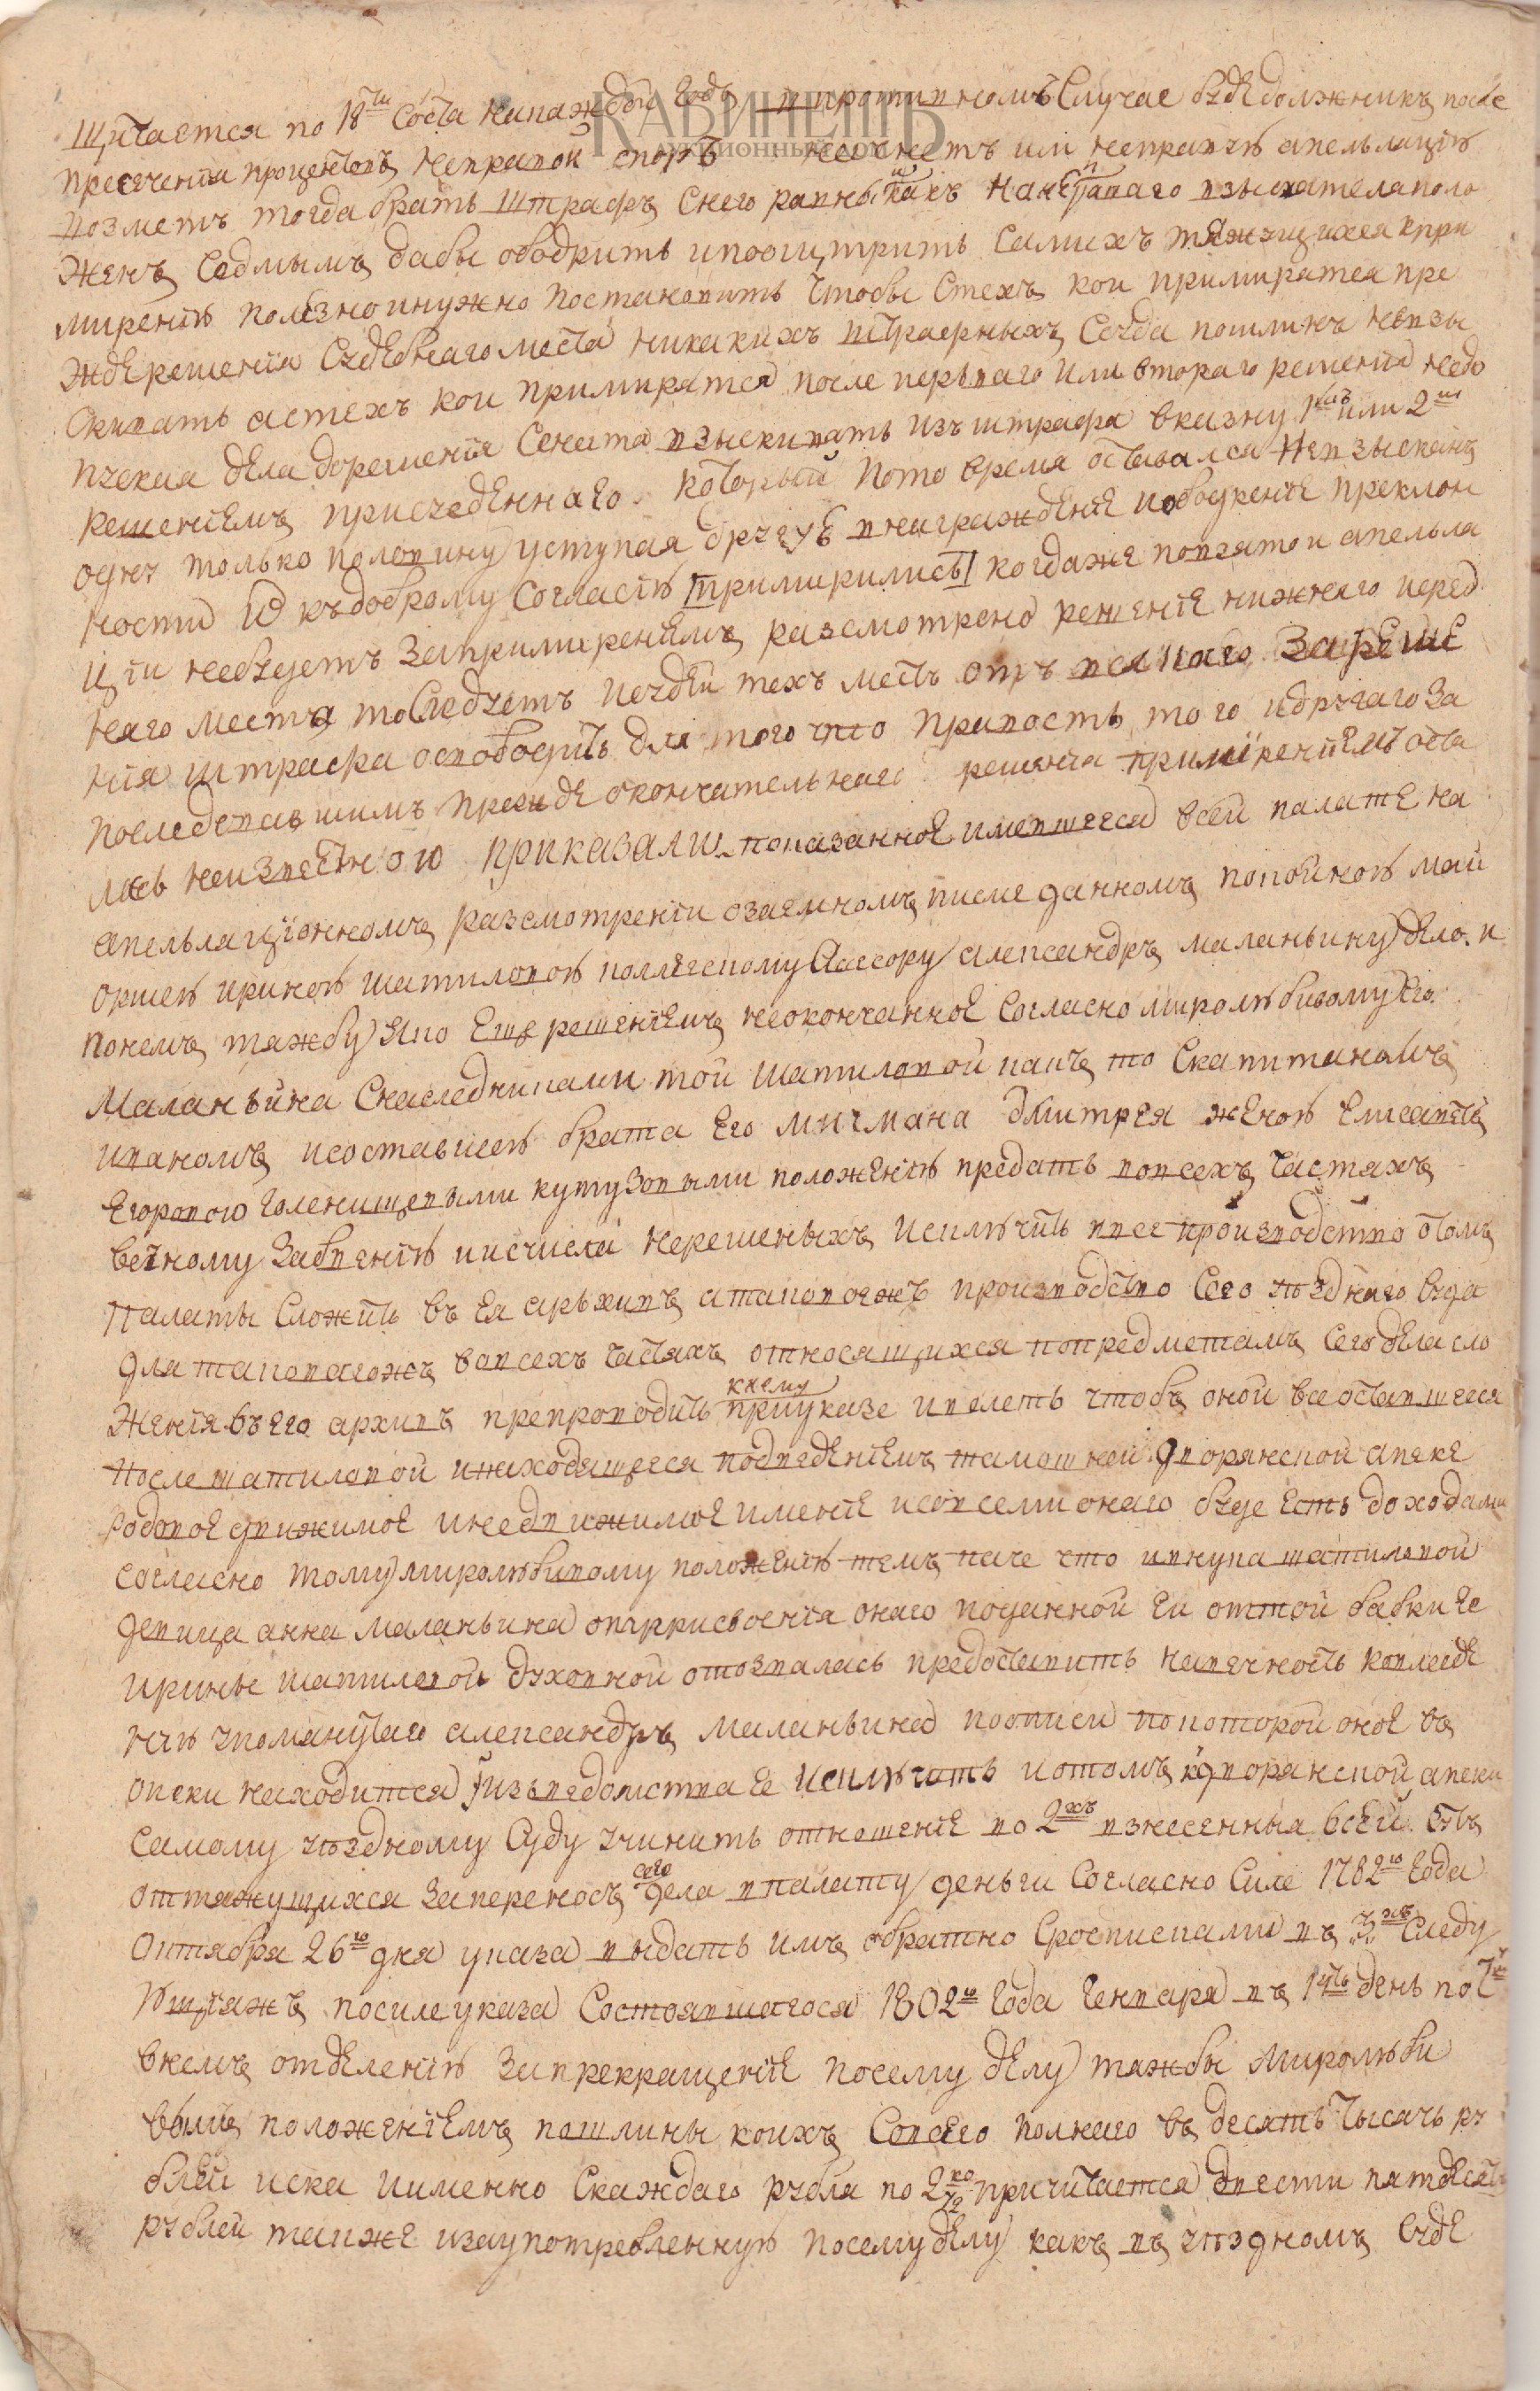 щитается по 18ти соста накаждой годъ впротивномъ случае буде должникъ после
КАБИНЕТЪ
АУКЦИОННЫЙ ДОМ
пресечения процентовъ неправой споръ начнетъ или неправую апелляцию
возметъ тогда брать штрафъ снего равной какъ нанеправаго взыскателя поло
женъ седмымъ дабы ободрить ипоощтрить самихъ тяжущихся кпри
мирению полезно инужно постановить чтобы стехъ кои примирятся пре
жде решения судебнаго места никакихъ штрафныхъ суда пошлинъ невзы
скивать астехъ кои примирятся после перьваго или втораго решения недо
пуская дела дорешения Сената взыскивать изъ штрафа вказну 1мъ или 2мъ
решениемъ присуденнаго который пото время оставался невзысканъ
одну только половину уступая другую внаграждение иободрение преклон
ности ихъ къ доброму согласию примирились когда же повзятои апелля
ции небудетъ запримирениемъ разсмотрено решение нижняго перед
няго места то следуетъ исудей техъ местъ отъ всякаго зареше
ния штрафа освободить для того что правость того идругаго за
последовавшимъ прежде окончательнаго решения примирениемъ оста
лась неизвестною приказали показанное имевшееся всей палате на
апелляционномъ разсмотрении озаемномъ писме данномъ покойною май
оршею ириною шатиловою коллегскому асессору александръ маланьину дело и
понемъ тяжбу яко еще решениемъ неоконченное согласно миролюбивому его
маланьина снаследниками той шатиловой какъ то скапитаномъ
иваномъ исоставшею брата его мичмана дмитрея женою елисаветъ
егоровою голенищевыми кутузовыми положению предать вовсехъ частяхъ
вечному забвению иисчисла нерешеныхъ исключить все производство отомъ
палаты сложить въ ея архивъ атаковоежъ производство сего уезднаго суда
для таковагожъ вовсехъ частяхъ относящихся попредметамъ сего дела сло
жения въ его архивъ препроводить кнему приуказе ивелеть чтобъ оной все оставшееся
после шатиловой инаходящееся подведениемъ тамошней дворянской опеке
родовое движимое инедвижимое имение исовсеми онаго буде есть доходами
согласно тому миролюбивому положению темъ паче что ивнука шатиловой
девица анна маланьина отприсвоения онаго поданной ей оттой бабки ее
ирины шатиловой духовной отозвалась предоставить навечность ковладе
нию упомянутаго александръ маланьина поописи покоторой оное въ
опеки находится изъ ведомства ее исключить иотомъ кдворянской опеки
самому уездному суду учинить отношение по 2хъ взнесенныя всей
оттяжущихся заперенось сего дела впалату деньги согласно силе 1782го года
октября 26го дня указа выдать имъ обратно сросписками въ 3хъ следу
ющтяжъ посиле указа состоявшагося 1802го года генваря въ 14ть день по
внемъ отделению запрекращение посему делу тяжбы миролюби
вымъ положениемъ пошлины коихъ совсего полнаго въ десять тысячь ру
блей иска иименно скаждаго рубля по 2 1/2 ко причитается двести пятдесятъ
рублей также изаупотребленную посему делу какъ въ уездномъ суде